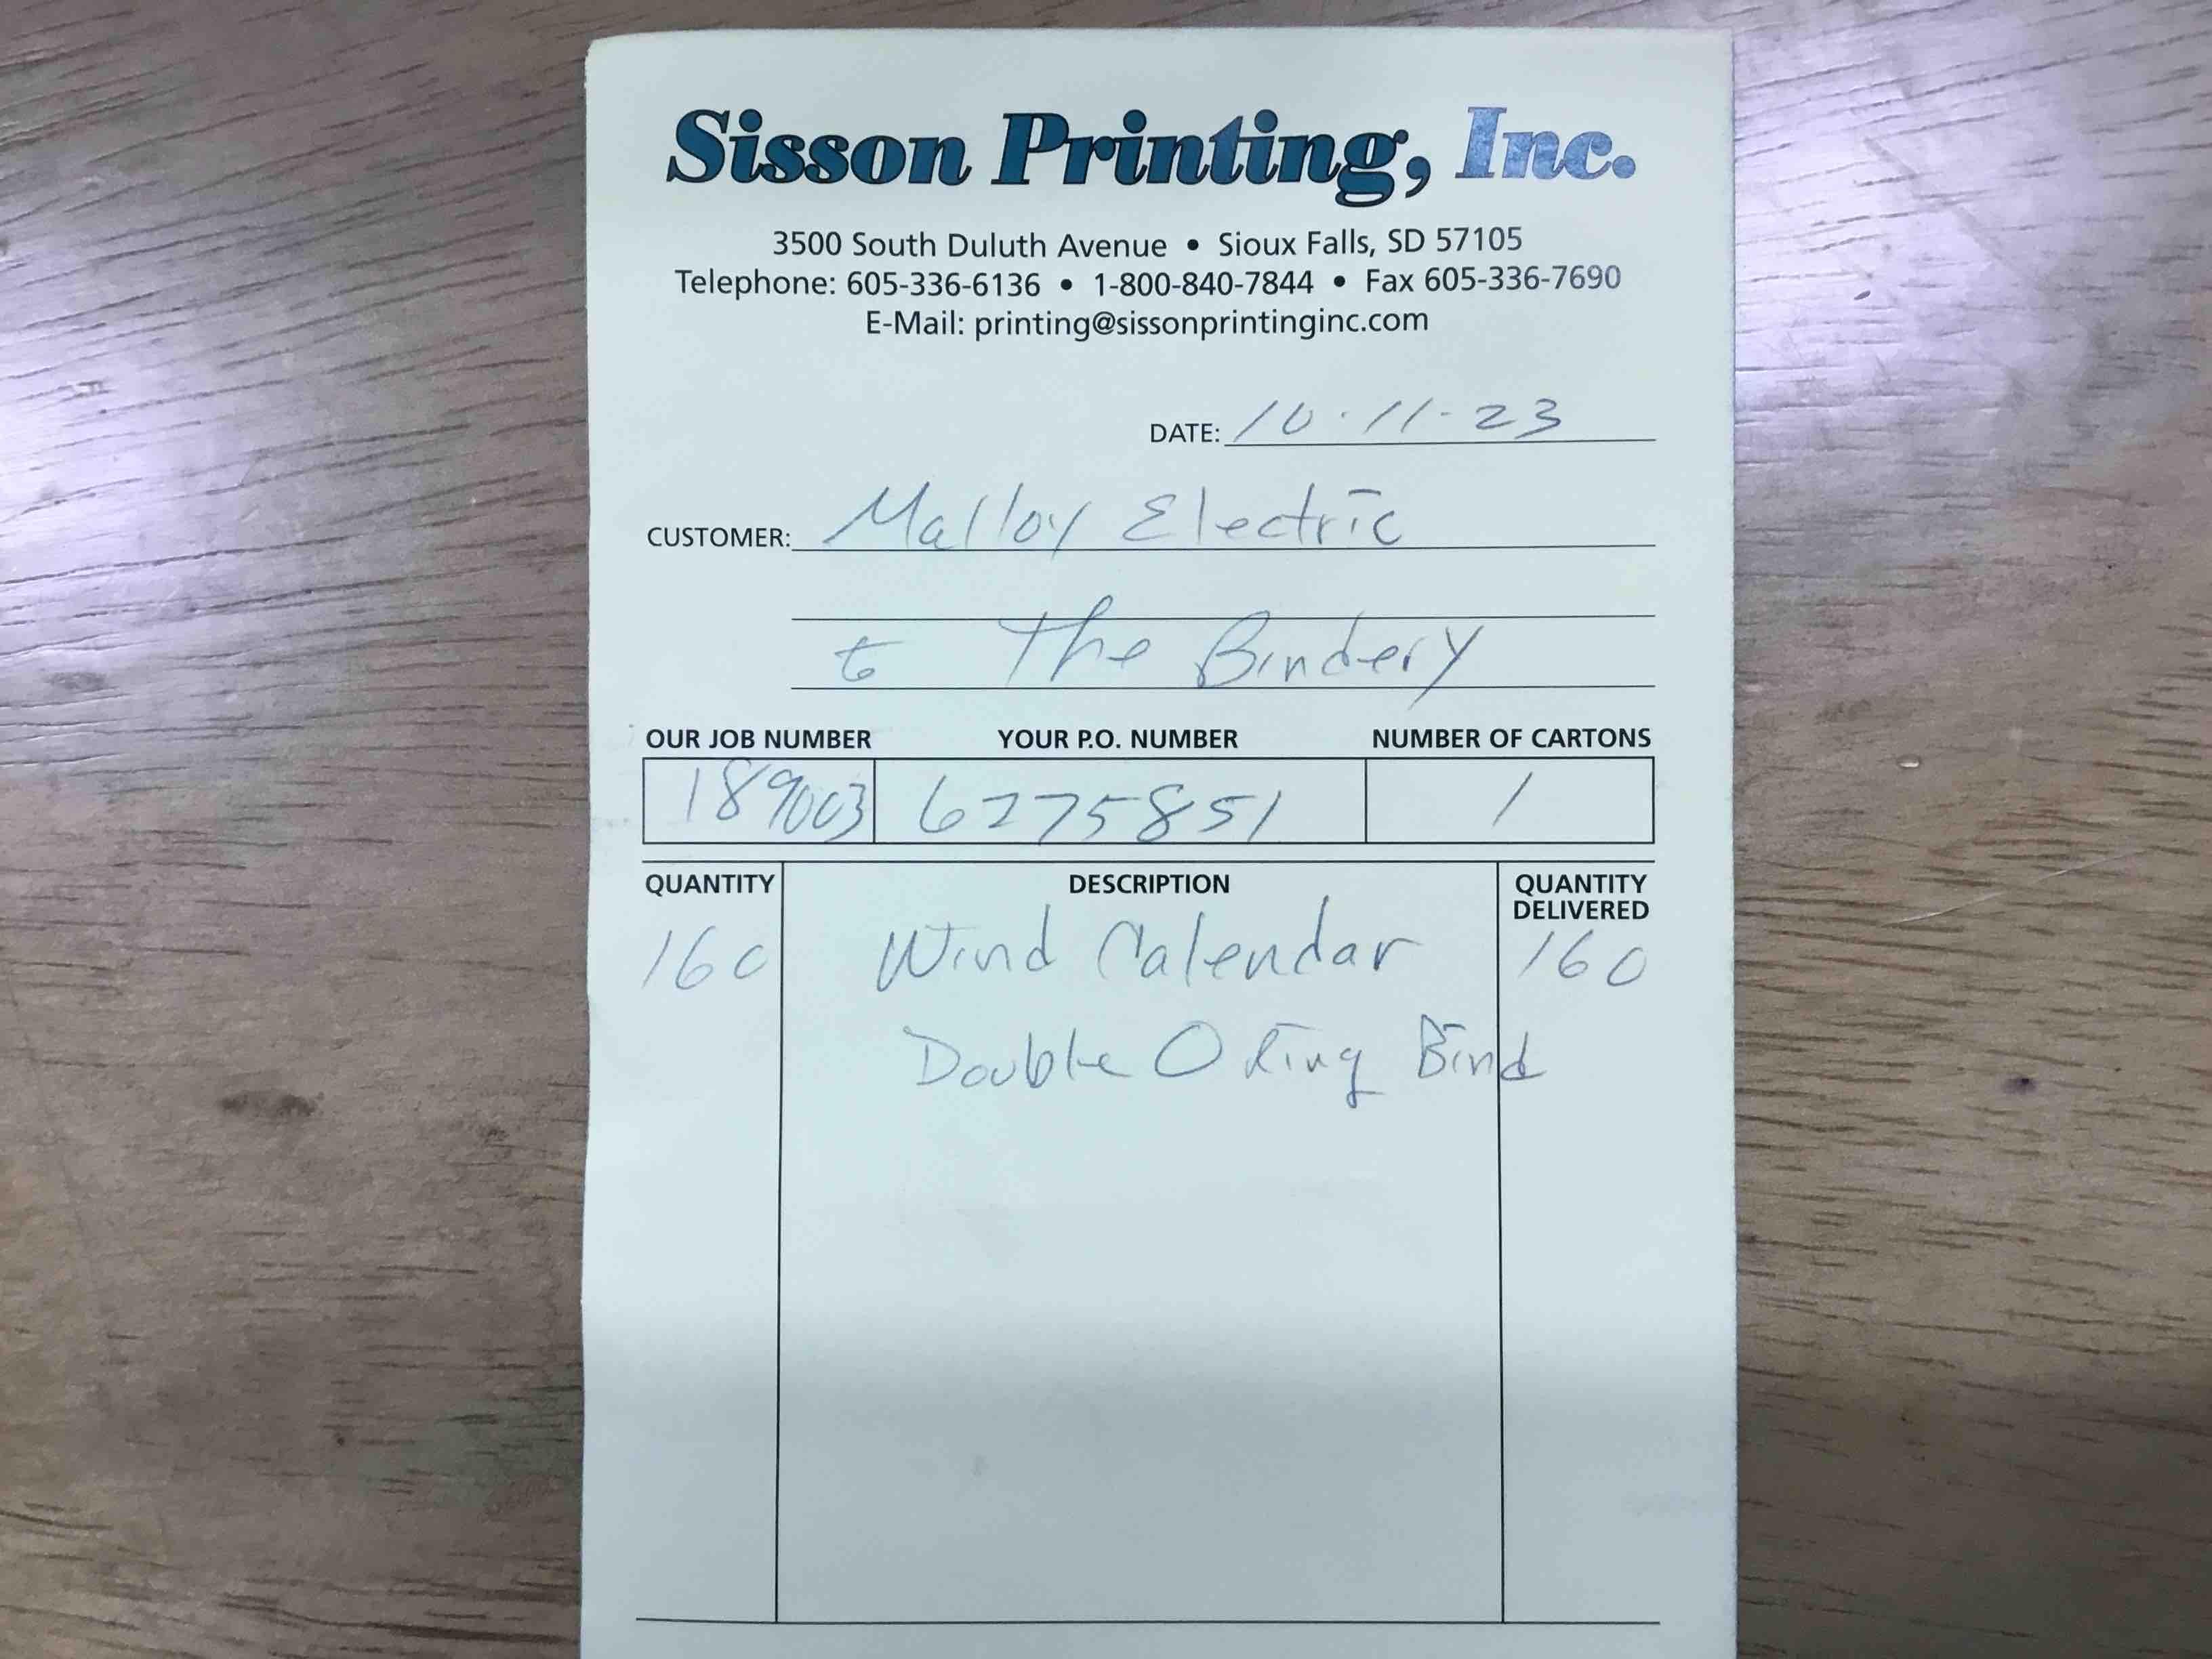 Sisson Printing, Inc.
3500 South Duluth Avenue • Sioux Falls, SD 57105
Telephone: 605-336-6136 • 1-800-840-7844 • Fax 605-336-7690
E-Mail: printing@sissonprintinginc.com
DATE: 10·11-23
CUSTOMER: Malloy Electric
to The Bindery
OUR JOB NUMBER YOUR P.O. NUMBER NUMBER OF CARTONS
189003 6275851 1
QUANTITY DESCRIPTION QUANTITY
DELIVERED
160 Wind Calendar 160
Double O Ring Bind